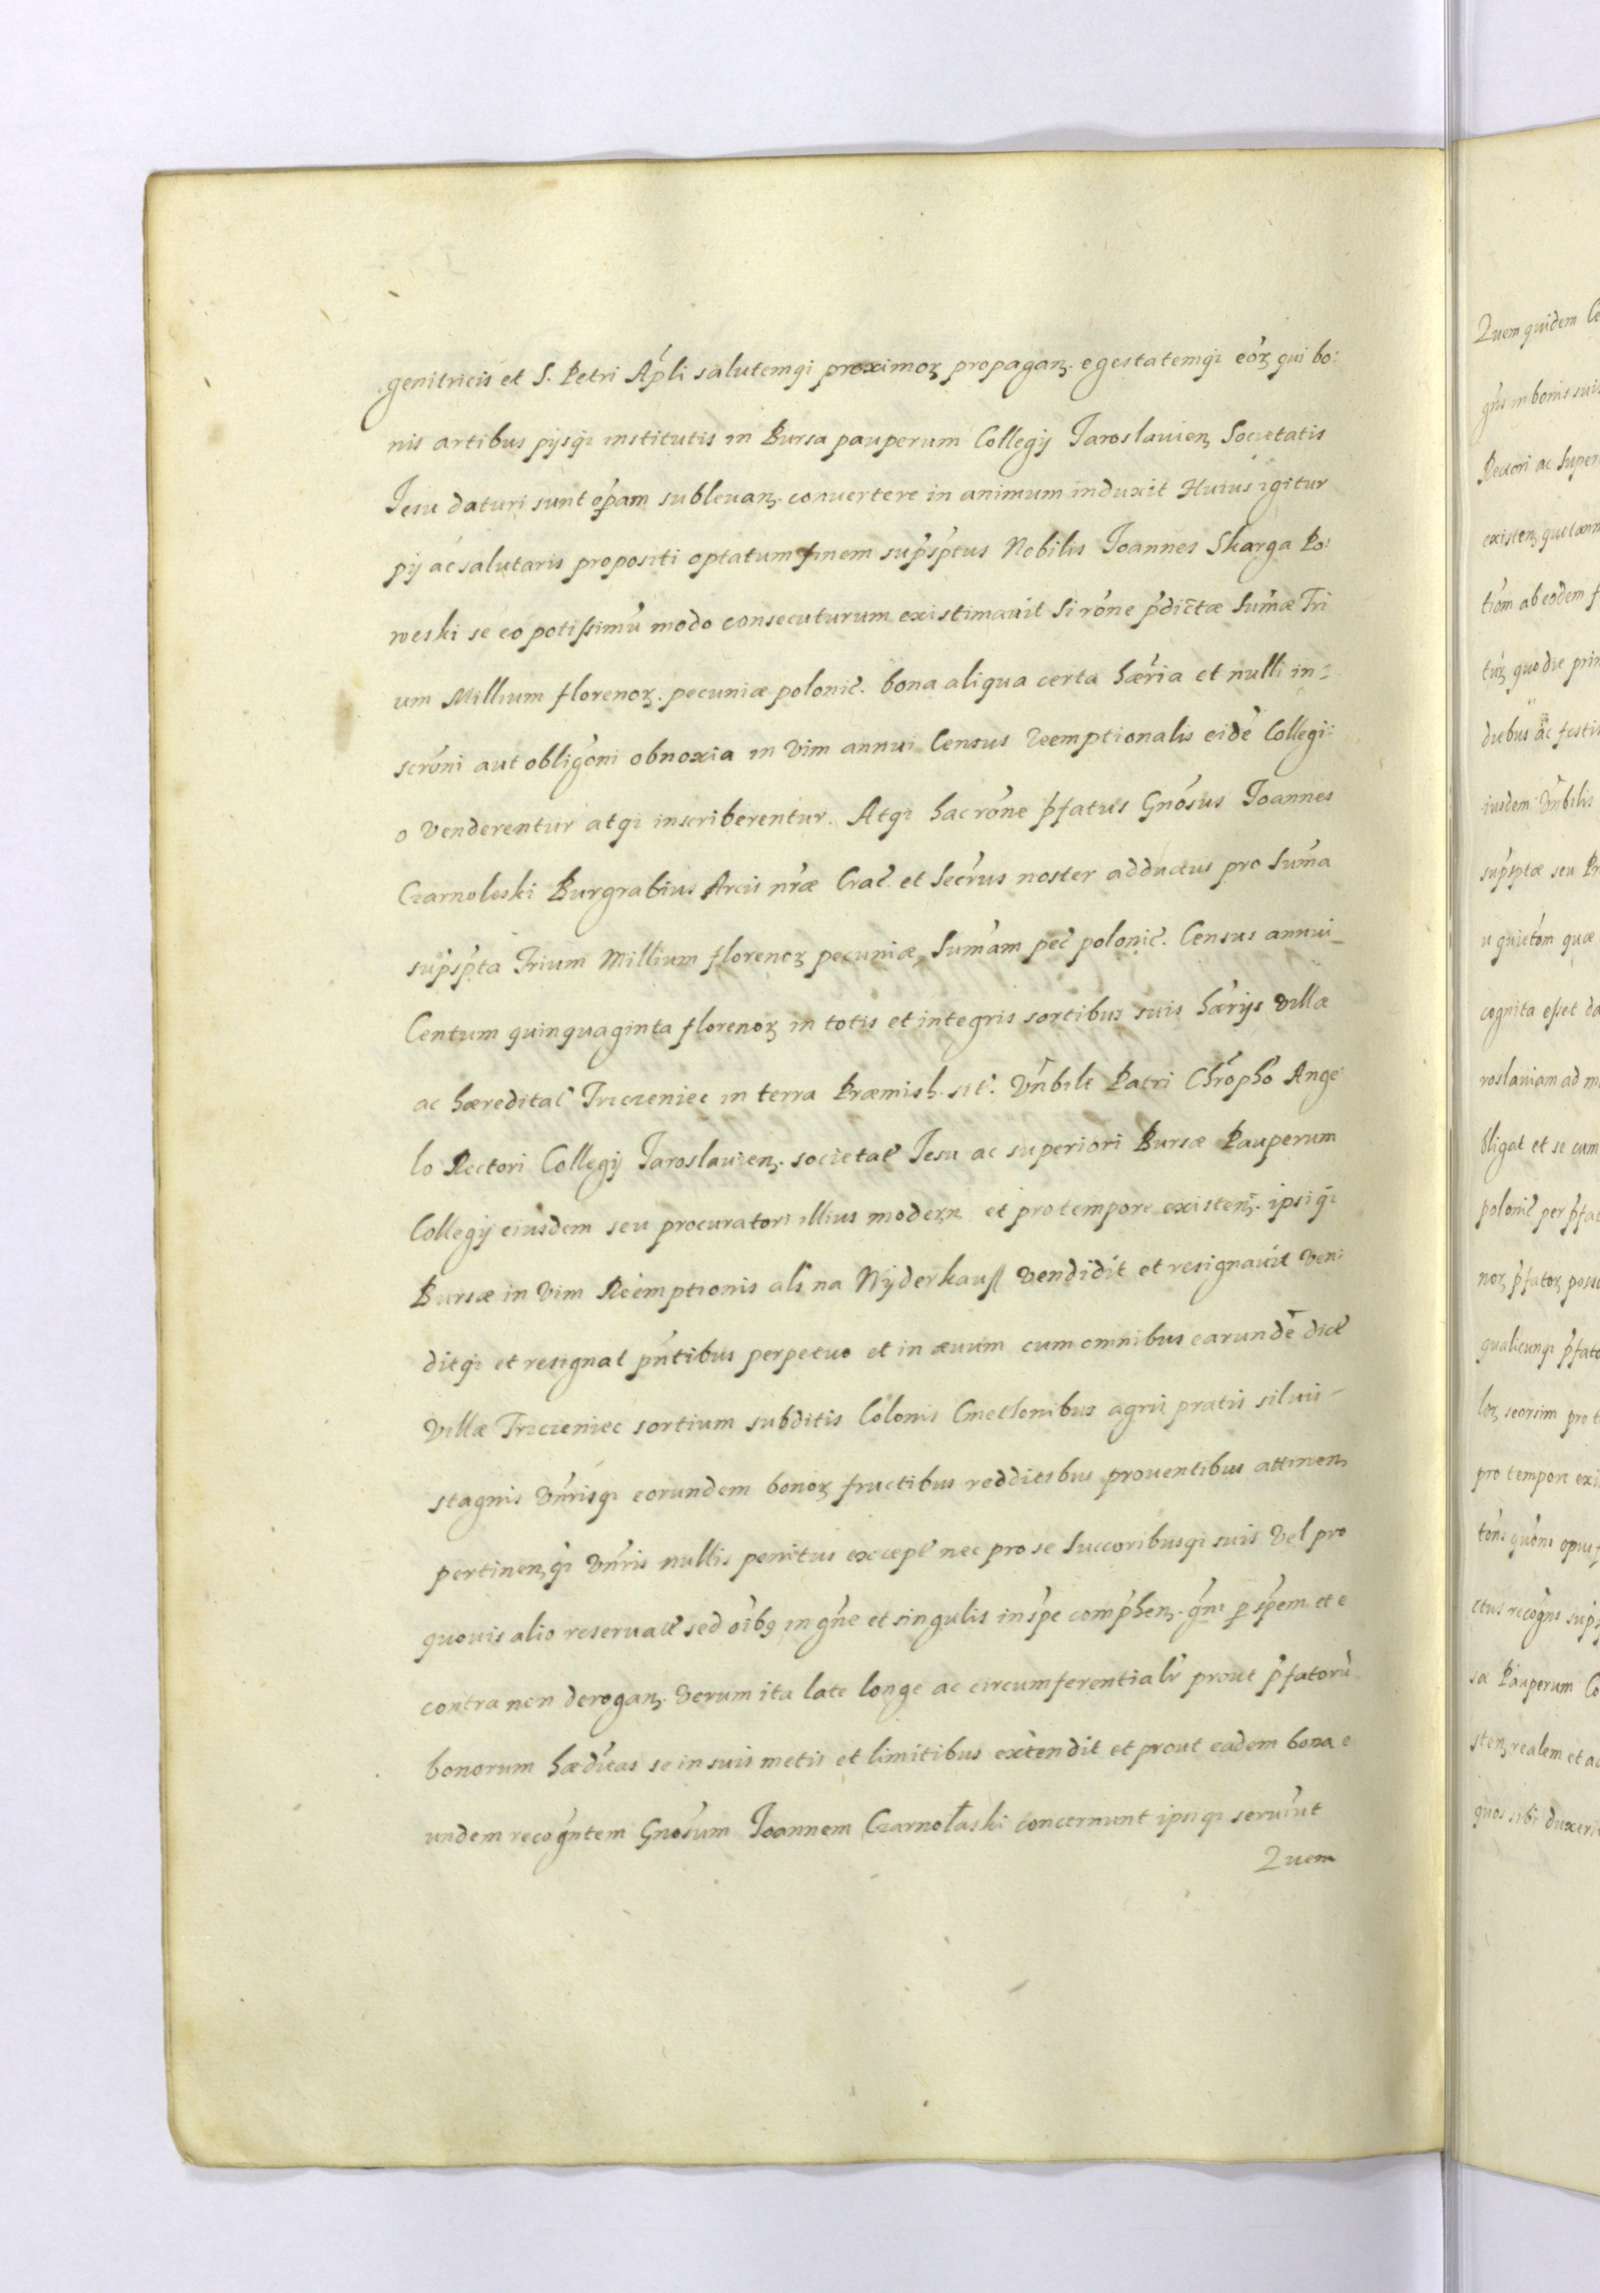 genitricis et S. Petri Apli salutemqi proximoꝝ propaganꝫ. egestatemqi eoꝝ qui bo:
nis artibus pijsqi institutis in Bursa pauperum Collegij Iaroslauienꝫ Societatis
Iesu daturi sunt opam subleuanꝫ. conuertere in animum induxit Huius igitur
pij ac salutaris propositi optatum finem supsptus Nobilis Ioannes Skarga Po:
weski se eo potissimũ modo consecuturum existimauit Si rone pdictæ Sumæ Tri
um Millium florenoꝝ. pecuniæ polonic. bona aliqua certa hæria et nulli in:
scroni aut obligoni obnoxia in vim annui Census Reemptionalis eidẽ Collegi:
o venderentur atqi inscriberentur. Atqi hac rone pfatus Gnosus Ioannes
Czarnoleski Burgrabius Arcis nræ Crac. et Secrus noster adductus pro Suma
supspta Trium Millium florenoꝝ pecuniæ, Sumam pec polonic. Census annui
Centum quinquaginta florenoꝝ in totis et integris sortibus suis hærijs villæ
ac hæreditat Trzczeniec in terra Præmisl. sit. Vnbili Patri Chropho Ange
lo Rectori Collegij Iaroslauienꝫ. societat Iesu ac superiori Bursæ Pauperum
Collegij eiusdem seu procuratori illius modern et pro tempore existenꝫ. ipsiqi
Bursæ in vim Reemptionis als na Wyderkauff vendidit et resignauit ven:
ditqi et resignat pntibus perpetuo et in æuum cum omnibus earundẽ dict
villæ Trzczeniec sortium subditis Colonis Cmetonibus agris pratis siluis
stagnis vnrisqi eorundem bonoꝝ fructibus redditibus prouentibus attinenꝫ
pertinenꝫqi vnris nullis penitus except nec pro se Succoribusqi suis vel pro
quouis alio reseruat sed oibꝫ in gne et singulis in spe comphenꝫ. gni p spem et e
contra non deroganꝫ. verum ita late longe ac circumferentialr prout pfatorũ
bonorum hæditas se in suis metis et limitibus extendit et prout eadem bona e
undem recogntem Gnosum Ioannem Czarnołaski concernunt ipsiqi seruiũt
Quem
Quem quidem Ce
gris in bonis suis
Rectori ac super
existenꝫ quotann
tiom ab eodem
quo die prim
dubus ac festis
iusdem Vnbilis
supsptæ seu Pr
u quietom quæ
cognita esset
roslauiam ad
bligat et se cum
polonic per pfat
noꝝ pfatoꝝ
qualicunqi pfato
seorsim pro
pro tempore exi
opus
ctus recogns
sæ Pauperum Co
stenꝫ realem et
quos sibi duxeri